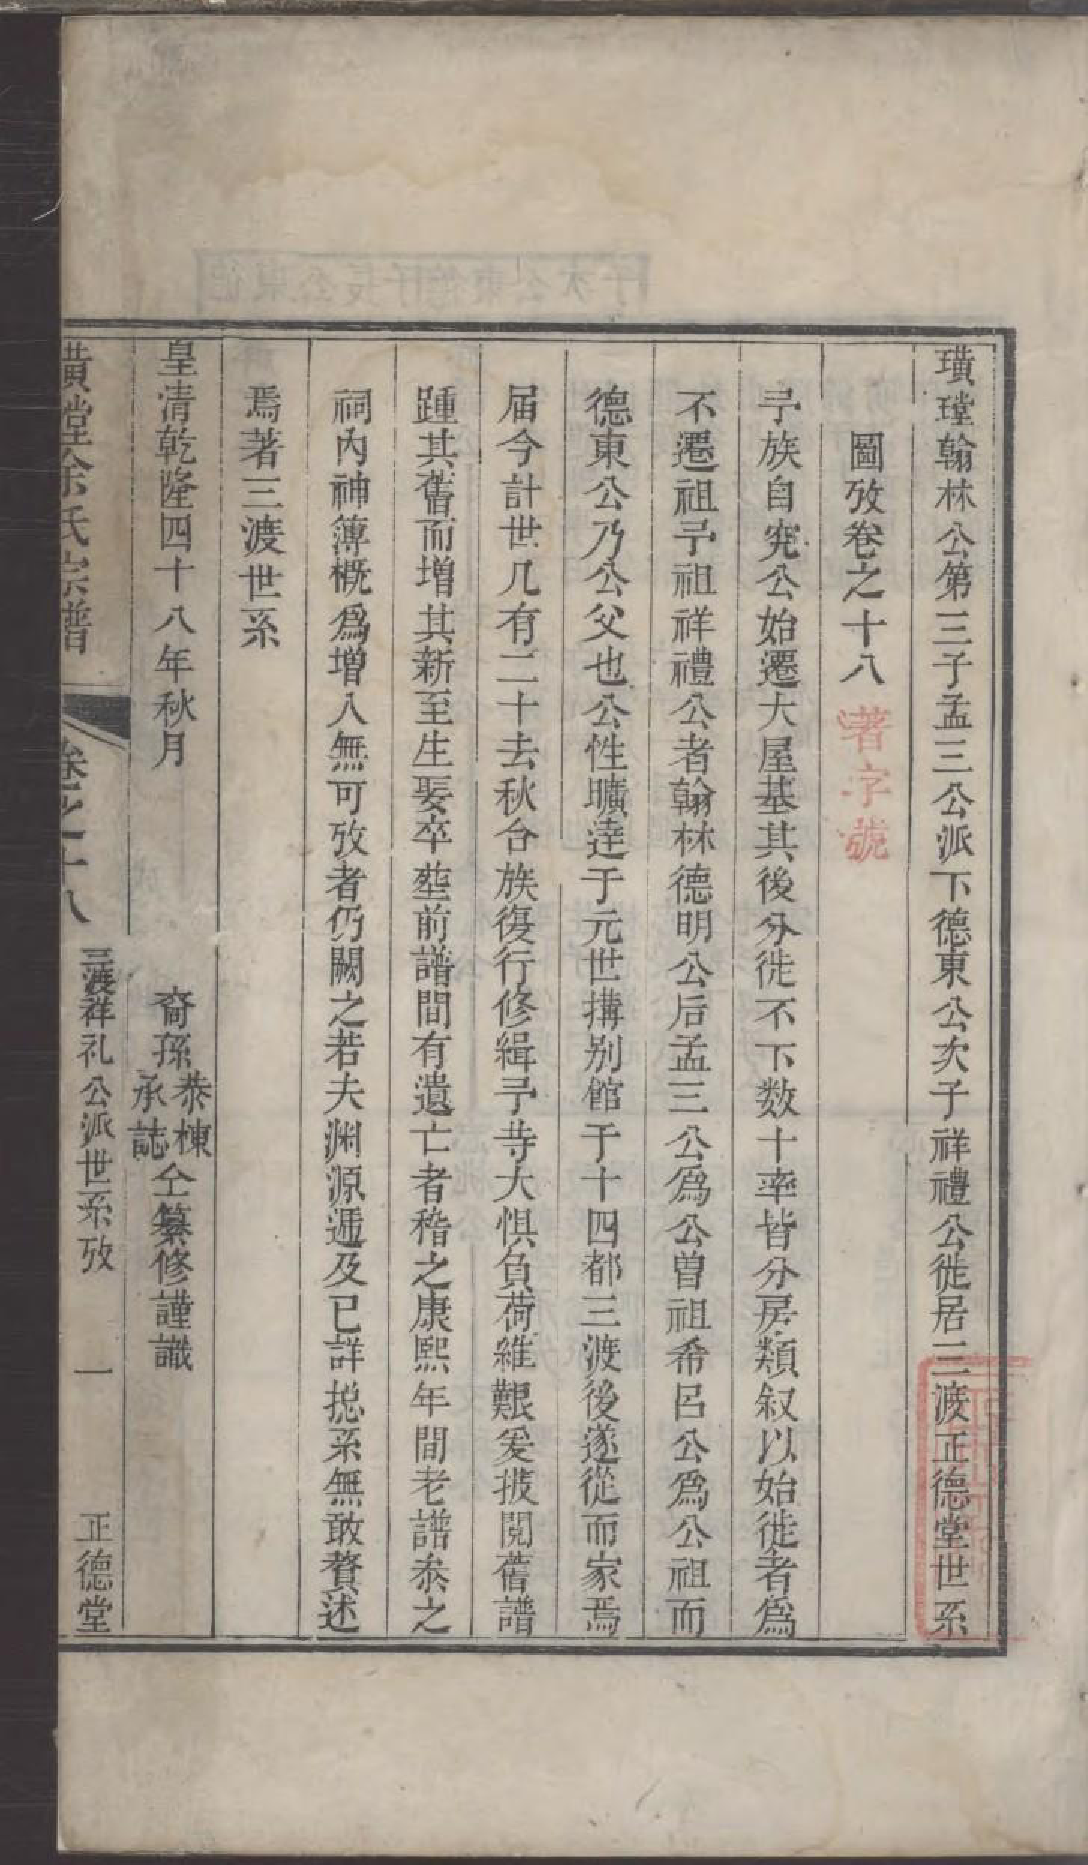 璜瑝翰林公第三子孟三公派下德東公次子祥禮公徙居三渡正德堂世系
圖攷卷之十八
著字號
予族自兖公始遷大屋基其後分徙不下数十率皆分房類叙以始徙者爲
不遷祖予祖祥禮公者翰林德明公后孟三公爲公曽祖希呂公爲公祖而
德東公乃公父也公性曠達于元世搆别館于十四都三渡後遂從而家焉
届今計世凢有二十去秋合族復行修緝予䓁大惧負荷維艱爰披閱舊譜
踵其舊而增其新至生娶卒塟前譜間有遺亡者稽之康熙年間老譜叅之
祠內神簿概爲增入無可攷者仍闕之若夫渊源遞及已詳捴系無敢贅述
焉著三渡世系
皇清乾隆四十八年秋月
裔孫泰棟承誌仝纂修謹識
璜瑝徐氏宗譜
卷之十八
三渡祥礼公派世系攷
一
正德堂